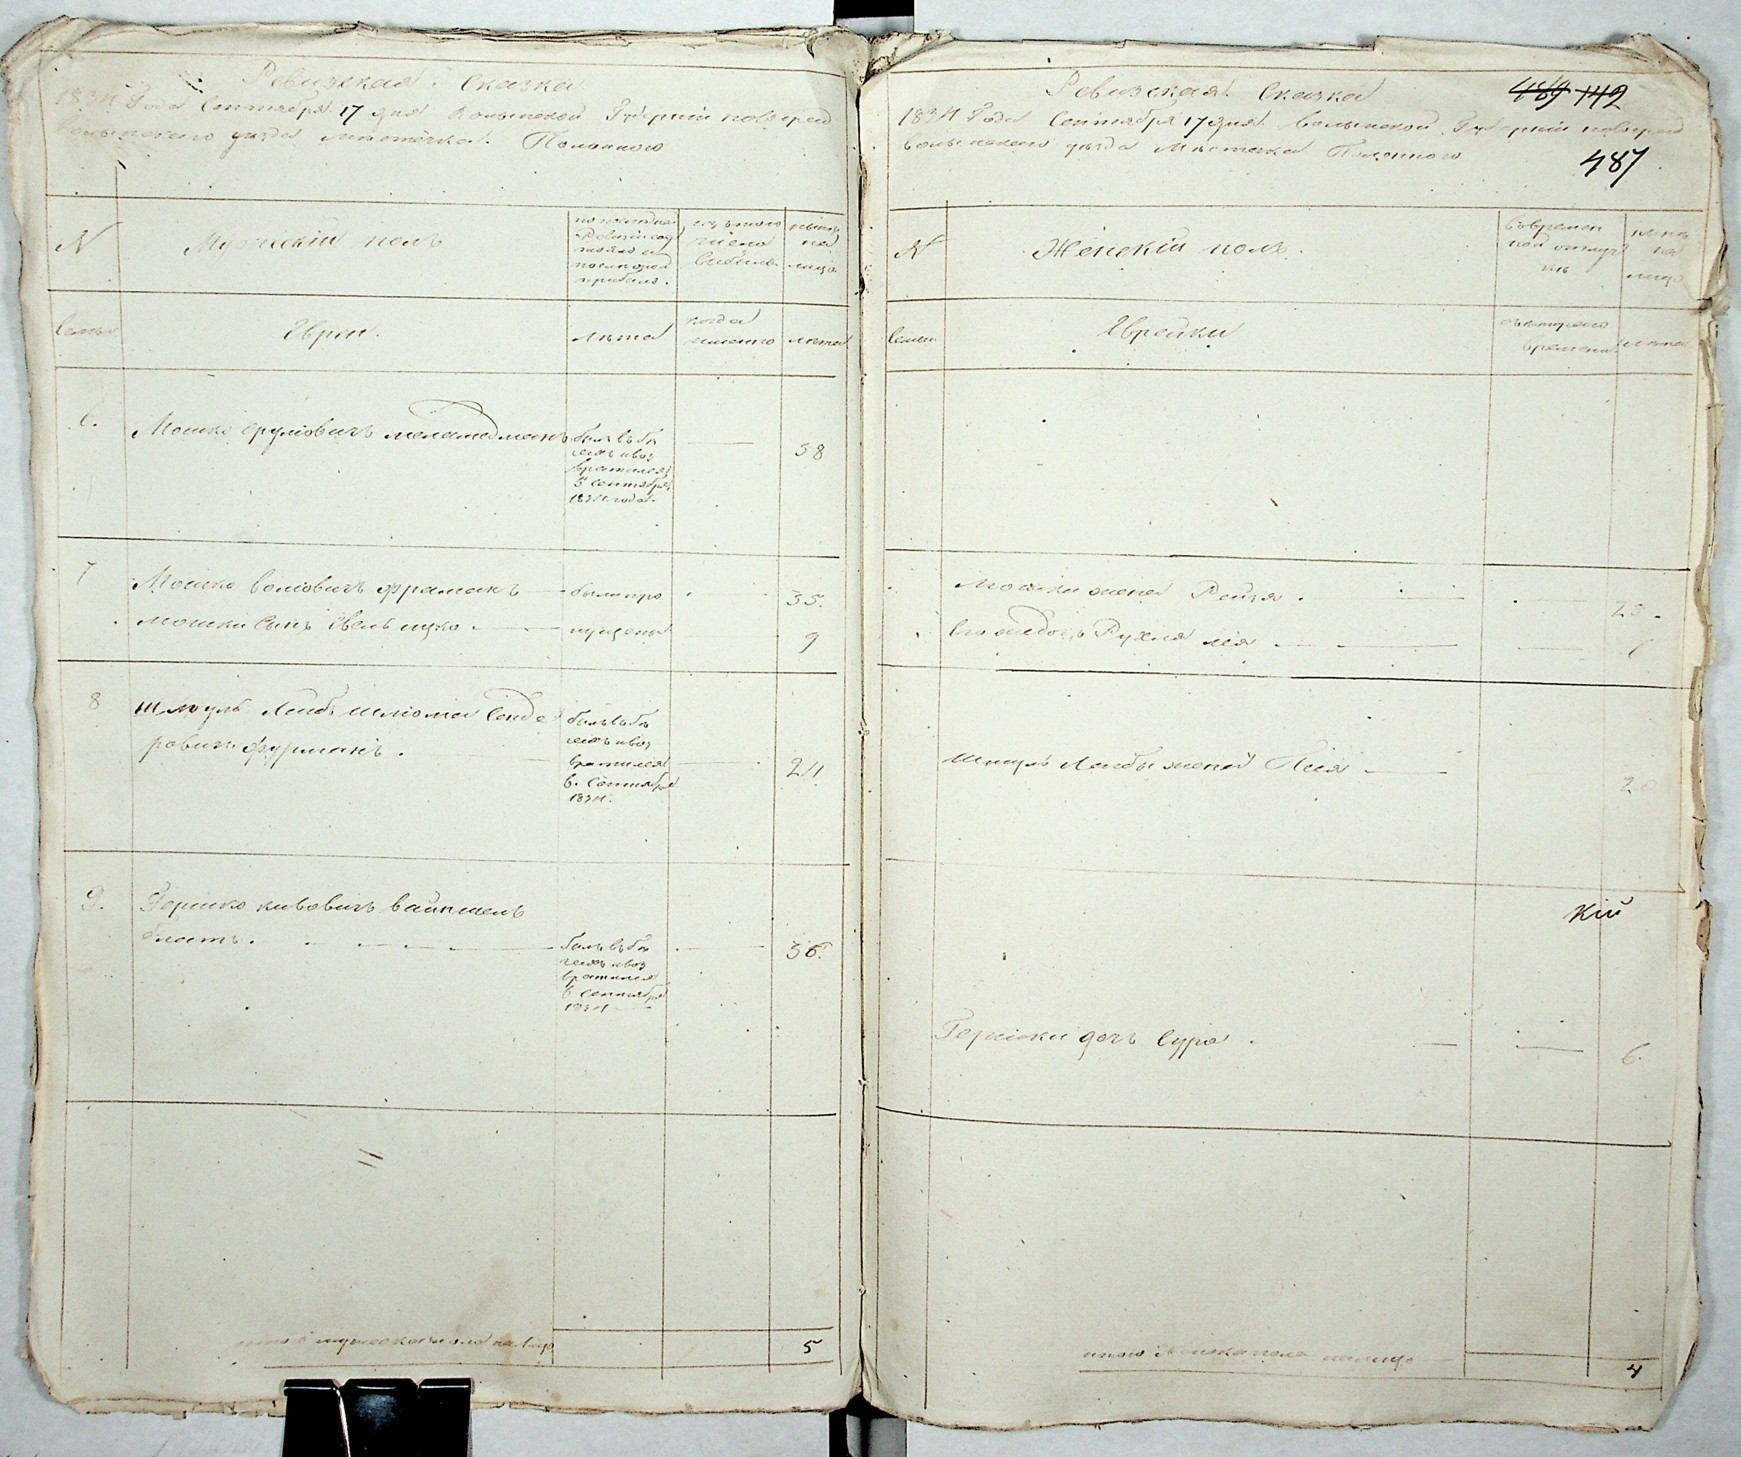 Ревизская Сказка
1834 Года Сентября 17 дня Волынской Губерніи новоград
волынского уѣзда мѣстечка Полонного
N
Мужескій полъ
по послѣдней
Ревизіи со
стояло и
послѣ оной
прибыло.
изъ того
числа
выбыло.
нынѣ
на
лицо.
Семьи
Евреи.
лѣта
когда
именно
лѣта
6.
Мошко Срулiовичъ меламедманъ
былъ въ бѣ
гахъ и воз
вратился
5 Сентября
1834 года.
58
7
Мошко Волiовичъ Фраманъ
были про
35.
мошки Сынъ Хвель ицко
пущены
9
8
Шмуль Лейбъ Шлiома Сенде
ровичъ Фурманъ.
былъ въ бѣ
гахъ и воз
вратился
в. Сентябрѣ
1834.
24
9.
Гершко кивовичъ вайншель
блатъ.
былъ въ бѣ
гахъ и воз
вратился
в Сентябрѣ
1834
36.
итого мужеска пола на лицо
5
Ревизская Сказка
489 142
487
1834 Года Сентября 17 дня Волынской Губерніи новоград
волынского уѣзда Мѣстечка Полонного
N
Женскій полъ.
Въ времен
ной отлуч
кѣ
нынѣ
на
лицо
Семьи
Еврейки
съ котораго
времени
лѣта
Мошки жена Рейзя.
Его же дочь Рухля лея
Шмуль Лейбы жена Песя
20
кій
Гершки дочь Сура.
6.
итого женска пола налицо
4